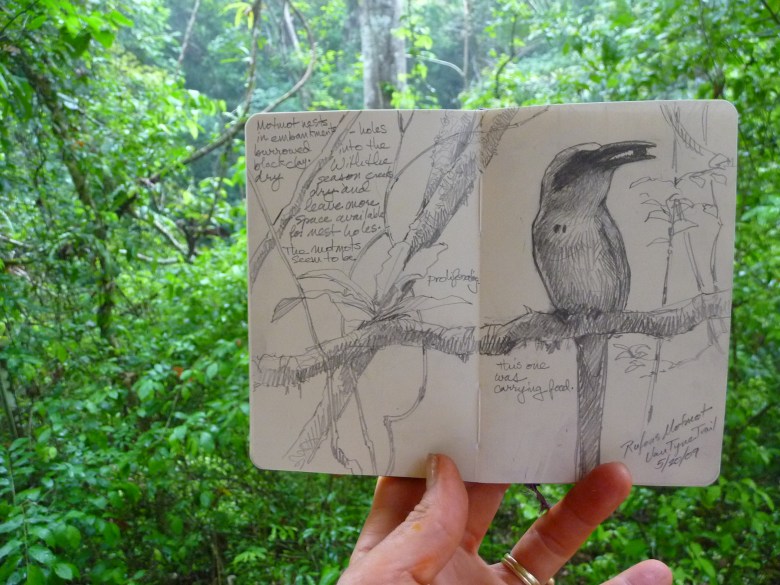 Motmot nests
in embankments - holes
burrowed into the
black clay. With the
dry season
dry and
leave more
space available
for nest holes.
The motmots
seem to be
This one
was
carrying food.
Rufous Motmot
Van Tyne Trail
5/20/09